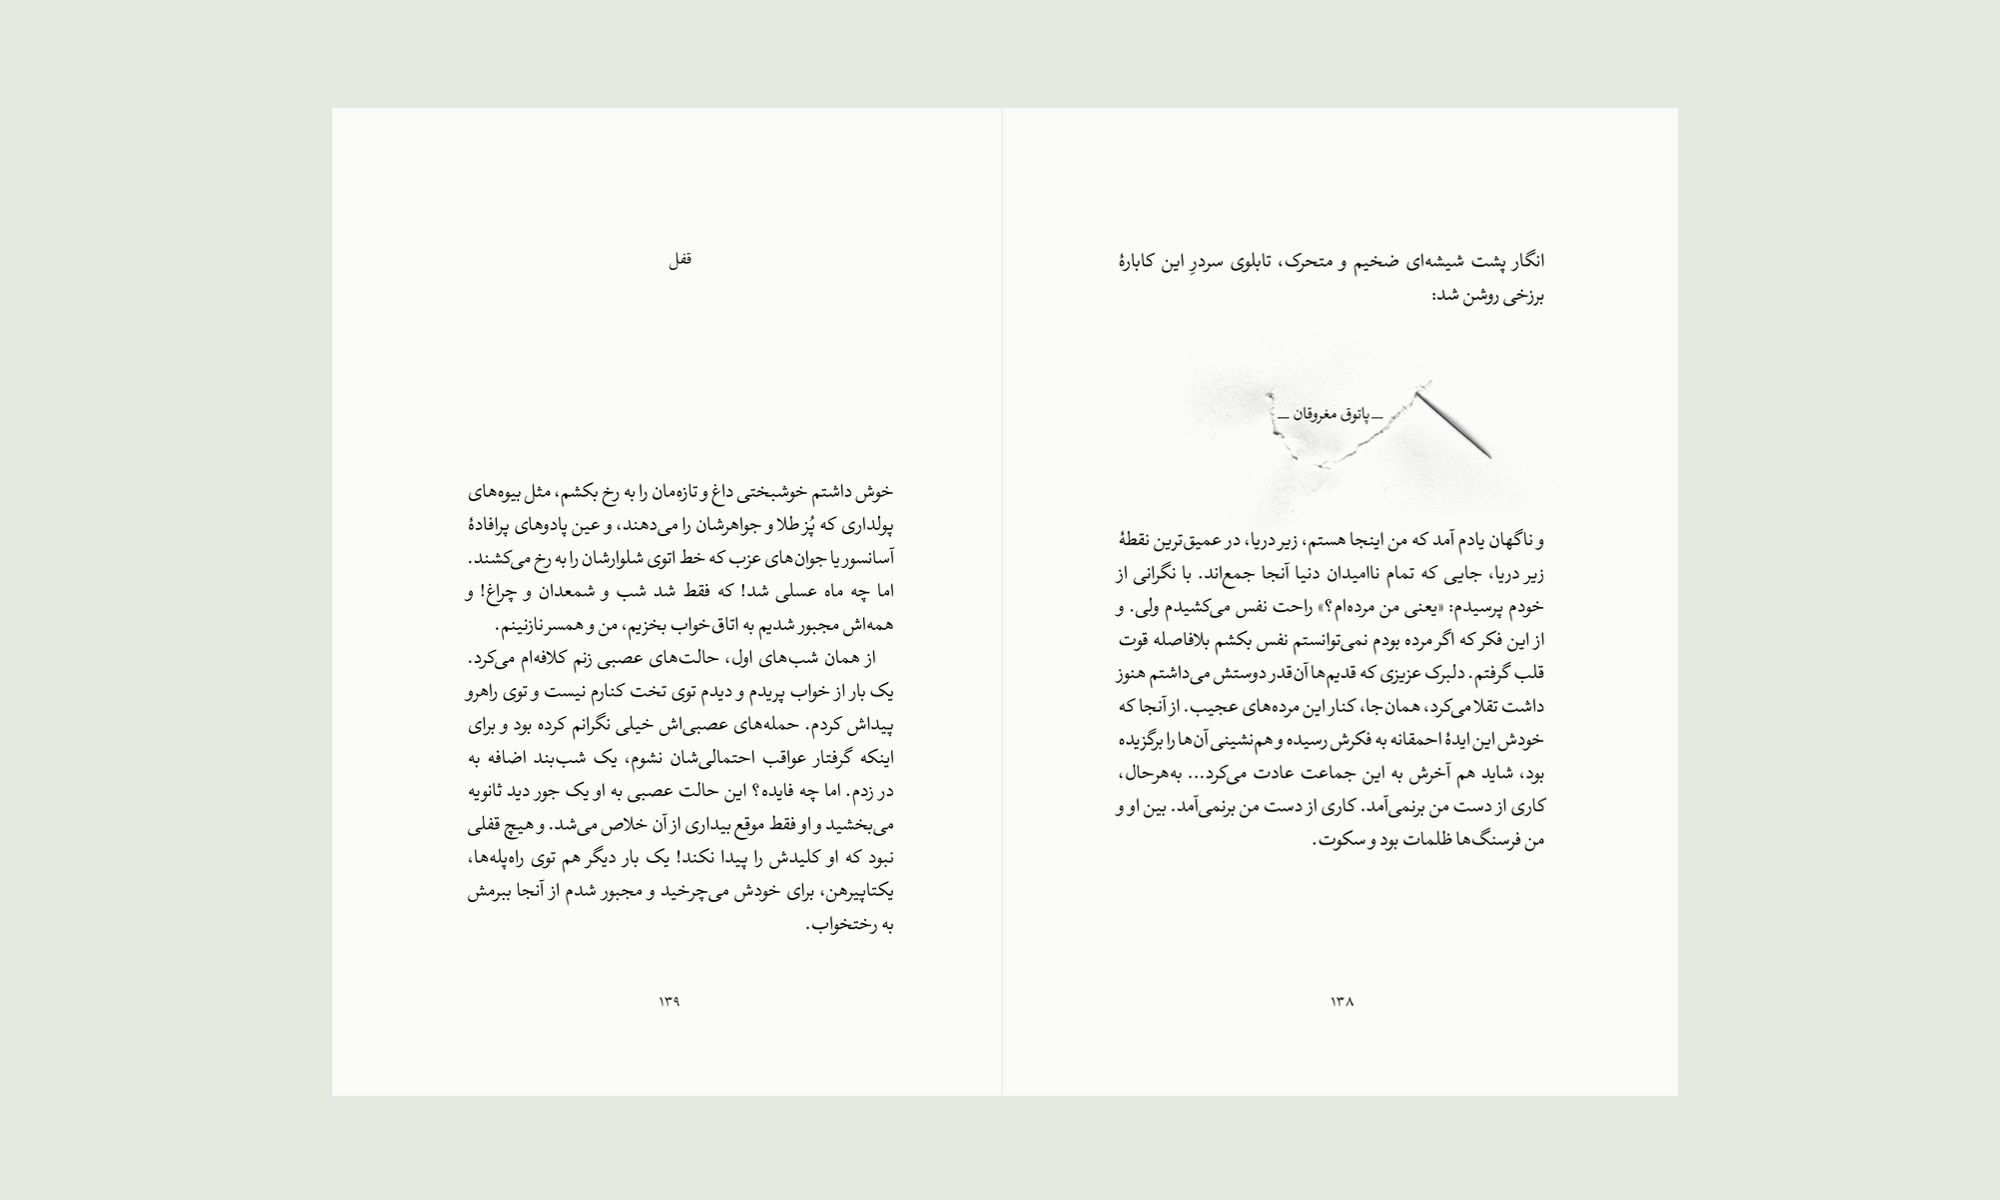 انگار پشت شیشه‌ای ضخیم و متحرک، تابلوی سردرِ این کابارهٔ
برزخی روشن شد:
ــ پاتوق مغروقان ــ
و ناگهان یادم آمد که من اینجا هستم، زیر دریا، در عمیق‌ترین نقطهٔ
زیر دریا، جایی که تمام ناامیدان دنیا آنجا جمع‌اند. با نگرانی از
خودم پرسیدم: «یعنی من مرده‌ام؟» راحت نفس می‌کشیدم ولی. و
از این فکر که اگر مرده بودم نمی‌توانستم نفس بکشم بلافاصله قوت
قلب گرفتم. دلبرک عزیزی که قدیم‌ها آن‌قدر دوستش می‌داشتم هنوز
داشت تقلا می‌کرد، همان‌جا، کنار این مرده‌های عجیب. از آنجا که
خودش این ایدهٔ احمقانه به فکرش رسیده و هم‌نشینی آن‌ها را برگزیده
بود، شاید هم آخرش به این جماعت عادت می‌کرد... به‌هرحال،
کاری از دست من برنمی‌آمد. کاری از دست من برنمی‌آمد. بین او و
من فرسنگ‌ها ظلمات بود و سکوت.
۱۳۸
قفل
خوش داشتم خوشبختی داغ و تازه‌مان را به رخ بکشم، مثل بیوه‌های
پولداری که پُز طلا و جواهرشان را می‌دهند، و عین پادوهای پرافادهٔ
آسانسور یا جوان‌های عزب که خط اتوی شلوارشان را به رخ می‌کشند.
اما چه ماه عسلی شد! که فقط شد شب و شمعدان و چراغ! و
همه‌اش مجبور شدیم به اتاق‌خواب بخزیم، من و همسر نازنینم.
از همان شب‌های اول، حالت‌های عصبی زنم کلافه‌ام می‌کرد.
یک بار از خواب پریدم و دیدم توی تخت کنارم نیست و توی راهرو
پیداش کردم. حمله‌های عصبی‌اش خیلی نگرانم کرده بود و برای
اینکه گرفتار عواقب احتمالی‌شان نشوم، یک شب‌بند اضافه به
در زدم. اما چه فایده؟ این حالت عصبی به او یک جور دید ثانویه
می‌بخشید و او فقط موقع بیداری از آن خلاص می‌شد. و هیچ قفلی
نبود که او کلیدش را پیدا نکند! یک بار دیگر هم توی راه‌پله‌ها،
یکتاپیرهن، برای خودش می‌چرخید و مجبور شدم از آنجا ببرمش
به رختخواب.
۱۳۹